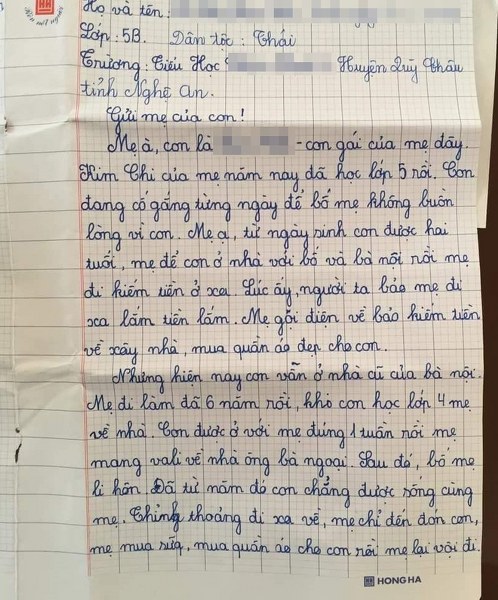 Họ và tên :
Lớp : 5B. Dân tộc : Thái
Trường : Tiểu Học Huyện Quỳ Châu
tỉnh Nghệ An.
Gửi mẹ của con !
Mẹ à, con là - con gái của mẹ đây.
Kim Chi của mẹ năm nay đã học lớp 5 rồi. Con
đang cố gắng từng ngày để bố mẹ không buồn
lòng vì con. Mẹ ạ, từ ngày sinh con được hai
tuổi, mẹ để con ở nhà với bố và bà nội rồi mẹ
đi kiếm tiền ở xa. Lúc ấy, người ta bảo mẹ đi
xa lắm tiền lắm. Mẹ gọi điện về bảo kiếm tiền
về xây nhà, mua quần áo đẹp cho con.
Nhưng hiện nay con vẫn ở nhà cũ của bà nội.
Mẹ đi làm đã 6 năm rồi, khi con học lớp 4 mẹ
về nhà. Con được ở với mẹ đúng 1 tuần rồi mẹ
mang vali về nhà ông bà ngoại. Sau đó, bố mẹ
li hôn. Đã từ năm đó con chẳng được sống cùng
mẹ. Thỉnh thoảng đi xa về, mẹ chỉ đến đón con,
mẹ mua sữa, mua quần áo cho con rồi mẹ lại vội đi.
HONG HA